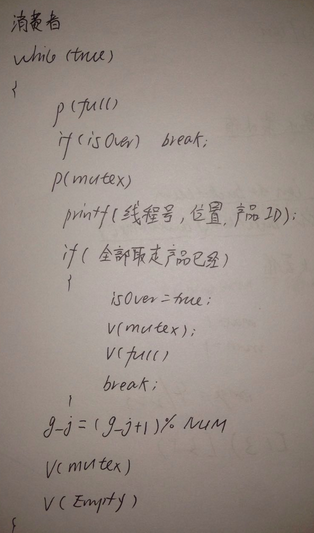 消费者
while (true)
{
p(full)
if(isOver) break;
p(mutex)
printf(线程号,位置,产品ID);
if( 全部取走产品已经)
{
isOver=true;
V(mutex);
V(full)
break;
}
g_j=(g_j+1)% NUM
V(mutex)
V(Empty)
}